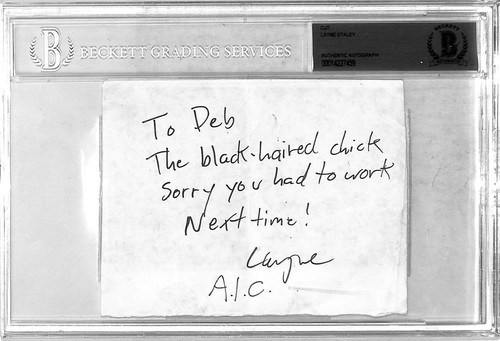 BECKETT GRADING SERVICES
CUT
LAYNE STALEY
AUTHENTIC AUTOGRAPH
To Deb
The black-haired chick
Sorry you had to work
Next time!
Layne
A.I.C.